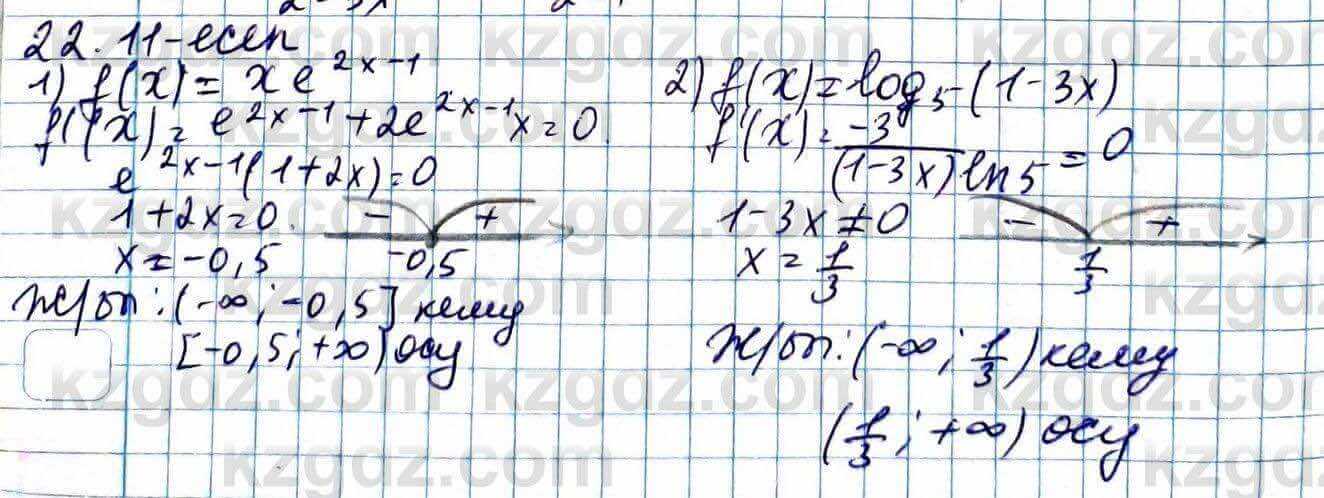 22.11-есеп
1) f(x)= xe^{2x-1}
f'(x)= e^{2x-1}+2e^{2x-1}x=0.
e^{2x-1}(1+2x)=0
1+2x=0.
x=-0,5
- +
-0,5
Ж/бы: (-∞; -0,5] кему
[-0,5; +∞) өсу
2) f(x)=log_5 (1-3x)
f'(x)= \frac{-3}{(1-3x)ln5}=0
1-3x≠0
x=\frac{1}{3}
- +
\frac{1}{3}
Ж/бы: (-∞; \frac{1}{3}) кему
(\frac{1}{3}; +∞) өсу
kzgdz.com